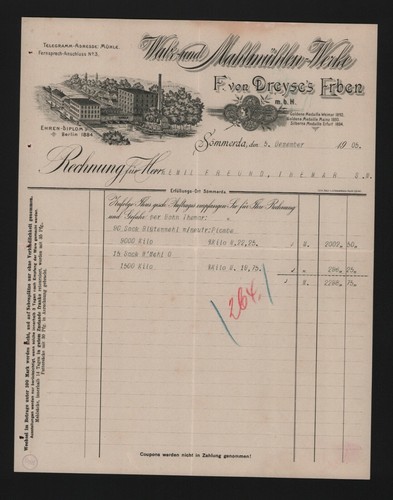 TELEGRAMM-ADRESSE: MÜHLE.
Fernsprech-Anschluss Nº 3.
Walz- und Mahlmühlen-Werke
F. von Dreyse's Erben
m. b. H.
Goldene Medaille Weimar 1892.
Goldene Medaille Mainz 1893.
Silberne Medaille Erfurt 1894.
EHREN-DIPLOM
Berlin 1884.
Sömmerda, den 5. Dezember 1905.
Rechnung für Herrn EMIL FREUND, ILMENAU
Erfüllungs-Ort Sömmerda
Zufolge Ihres gesch. Auftrages empfangen Sie für Ihre Rechnung
und Gefahr per Bahn Ilmenau:
90 Sack Blütenmehl m/neutr: Plombe
9000 Kilo %Kilo M. 22,25. M. 2002. 50.
15 Sack R'Mehl 0
1500 Kilo %Kilo M. 19,75. 296. 25.
M. 2298. 75.
264.
Coupons werden nicht in Zahlung genommen!